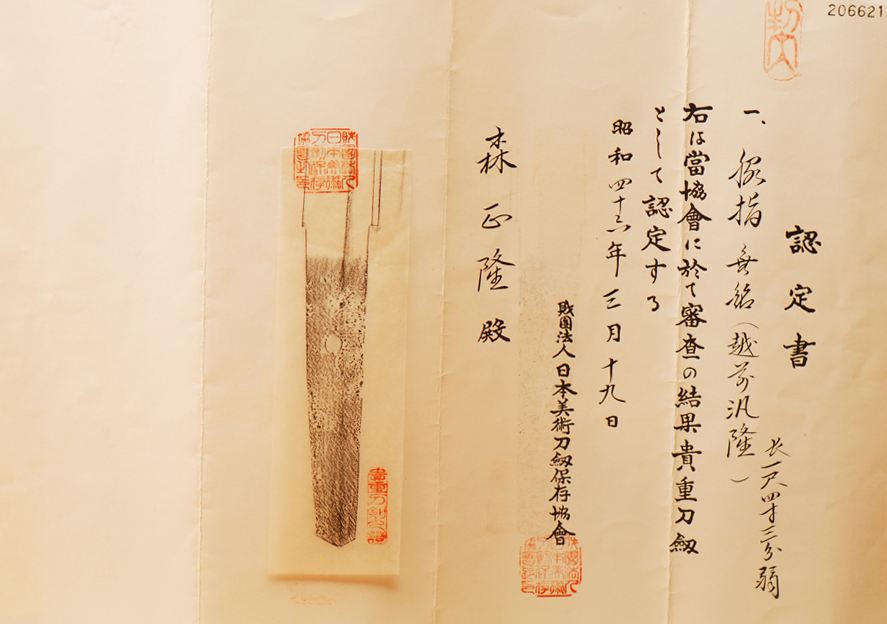 206621
認定書
一、脇指 無銘(越前汎隆)
長一尺四寸三分弱
右は當協會に於て審査の結果貴重刀劔
として認定する
昭和四十六年三月十九日
財團法人日本美術刀劔保存協會
森正隆殿